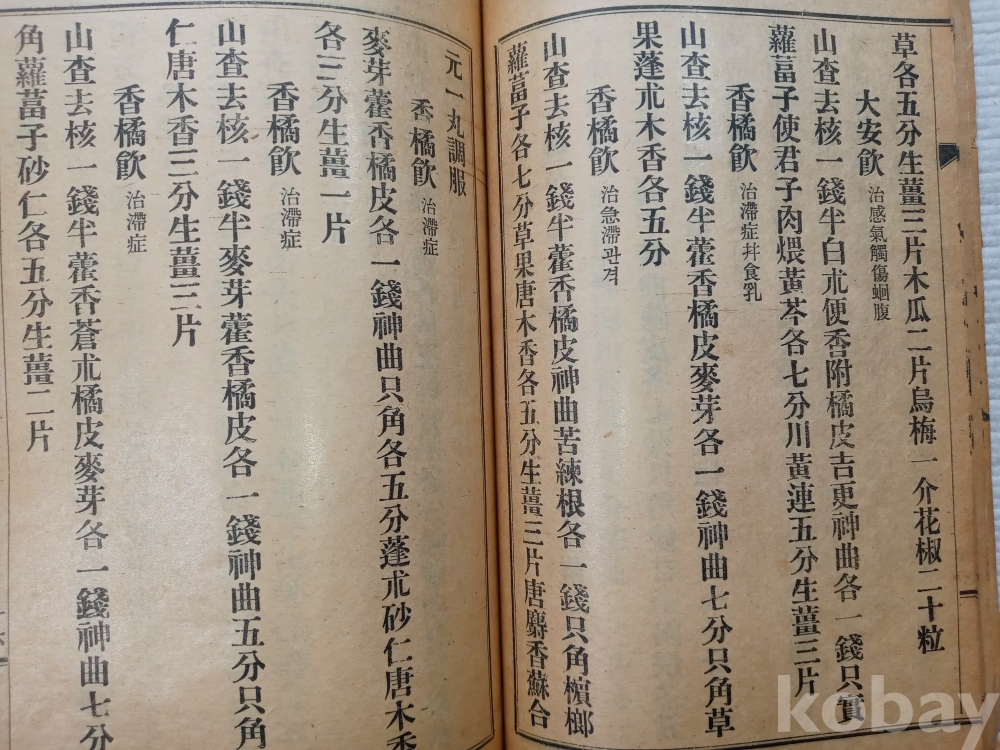 草各五分生薑三片木瓜二片烏梅一介花椒二十粒
大安飮 治感氣觸傷蛔腹
山查去核一錢半白朮便香附橘皮吉更神曲各一錢只實
蘿葍子使君子肉煨黃芩各七分川黃連五分生薑三片
香橘飮 治滯症幷食乳
山查去核一錢半藿香橘皮麥芽各一錢神曲七分只角草
果蓬朮木香各五分
香橘飮 治急滯관격
山查去核一錢半藿香橘皮神曲苦練根各一錢只角檳榔
蘿葍子各七分草果唐木香各五分生薑三片唐麝香蘇合
元一丸調服
香橘飮 治滯症
麥芽藿香橘皮各一錢神曲只角各五分蓬朮砂仁唐木香
各三分生薑一片
香橘飮 治滯症
山查去核一錢半麥芽藿香橘皮各一錢神曲五分只角
仁唐木香三分生薑三片
香橘飮 治滯症
山查去核一錢半藿香蒼朮橘皮麥芽各一錢神曲七分
角蘿葍子砂仁各五分生薑二片
kobay